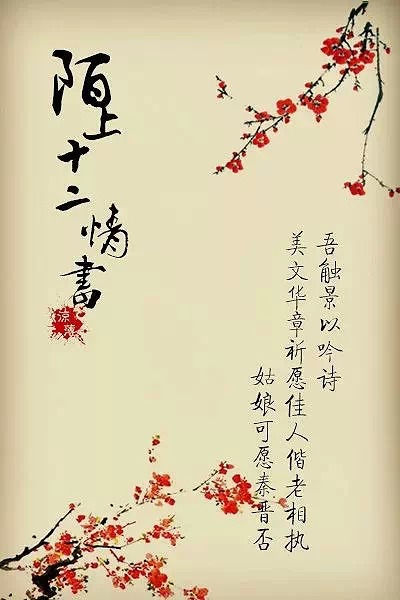 陌上十二情書
吾触景以吟诗
美文华章祈愿佳人偕老相执
姑娘可愿秦晋否